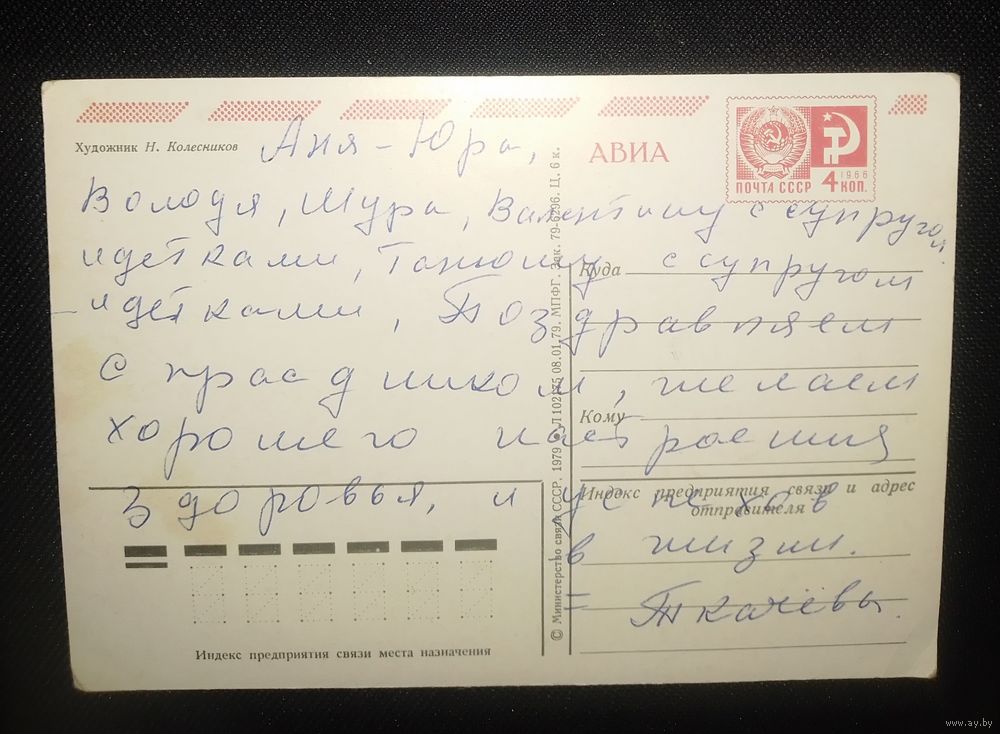 Художник Н. Колесников
Аня - Юра,
АВИА
ПОЧТА СССР
1966
4 КОП.
Володя, Шура, Валентину с супругой
и детками, Танюшу с супругом
и детками, Поздравляем
с праздником, желаем
хорошего настроения
здоровья, и успехов
в жизни.
= Ткачевы.
Куда
Кому
Индекс предприятия связи и адрес
отправителя
Индекс предприятия связи места назначения
© Министерство связи СССР, 1979 08.01.79. МПФГ. Зак. 79-6296. Ц. 6 к.
www.ay.by